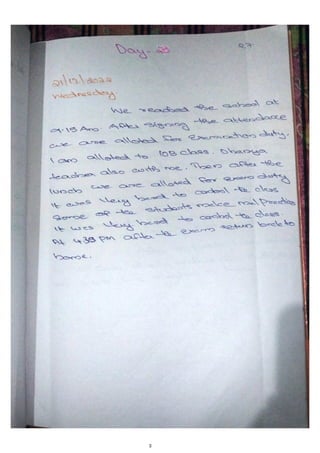 Day-23
27
21/12/2022
Wednesday
We reached the school at
9.15 Am. After signing the attendance
we are alloted for Examination duty.
I am alloted to 10B class. Dhanya
teacher also with me. Then after the
lunch we are alloted for exam duty
It was very hard to control the class
Some of the students make malpractice
It was very hard to control the class
At 4.30 pm after the exam return back to
home.